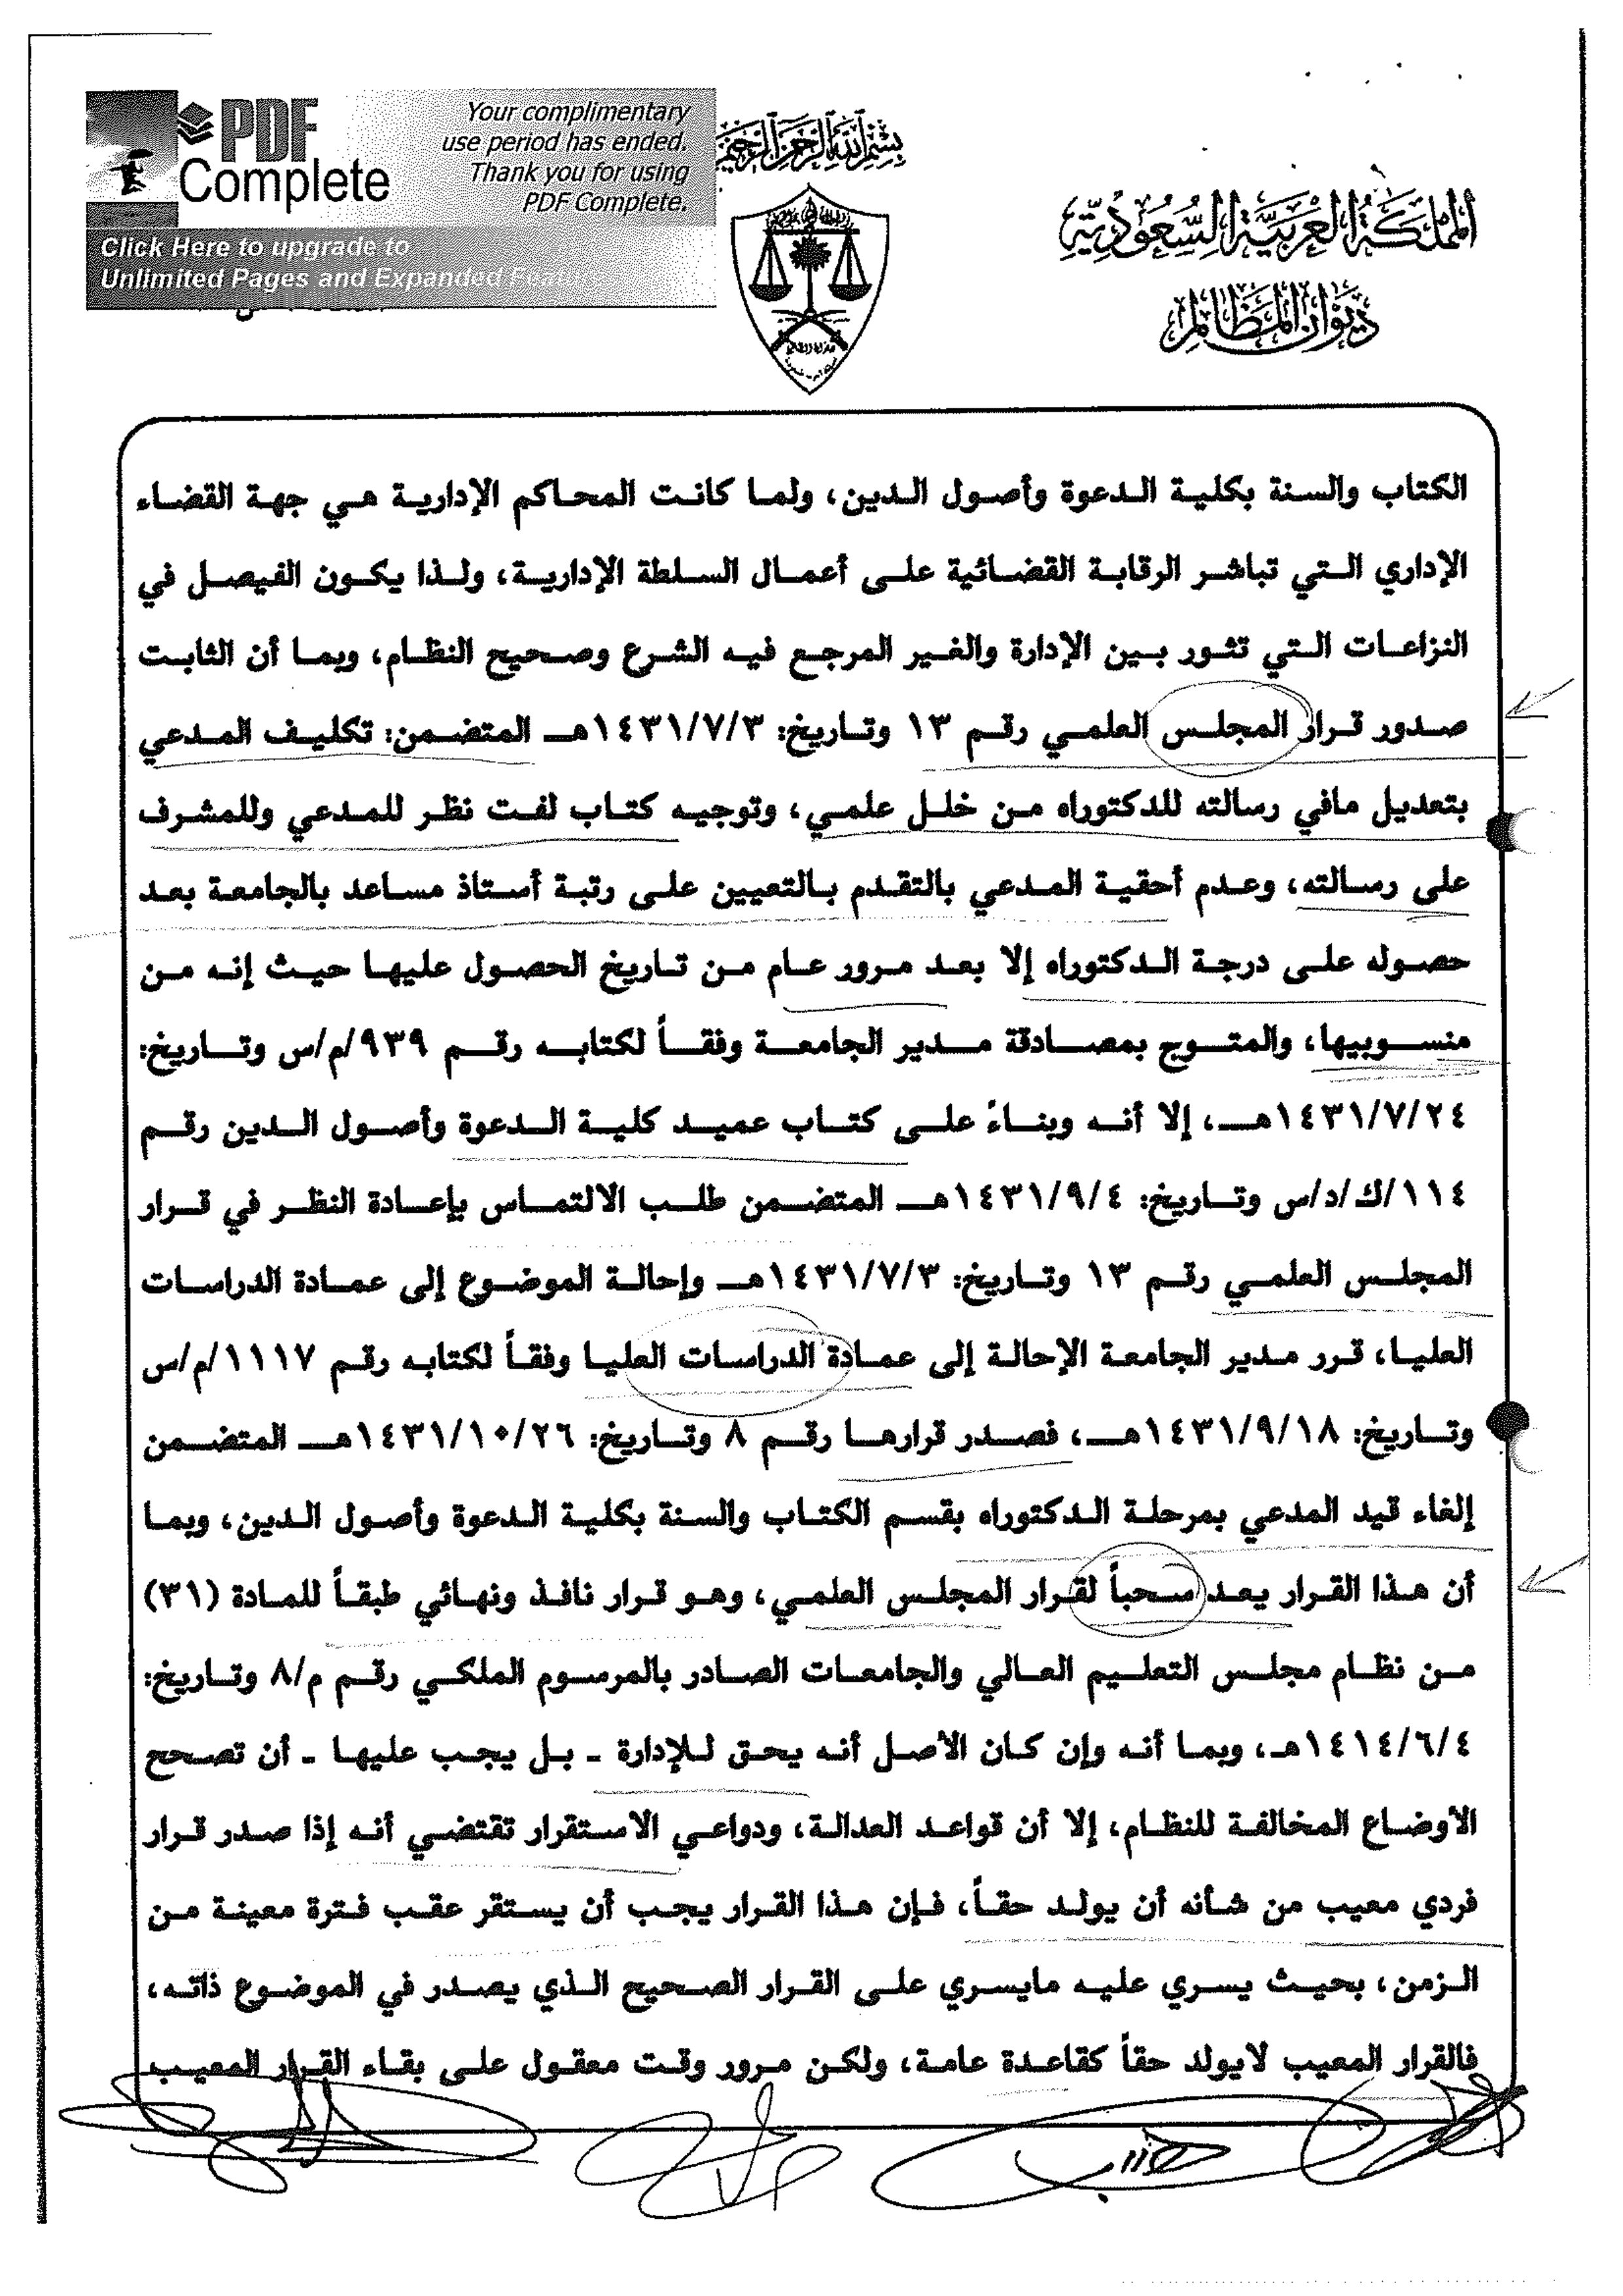 PDF Complete
Your complimentary
use period has ended.
Thank you for using
PDF Complete.
Click Here to upgrade to
Unlimited Pages and Expanded Features
بسم الله الرحمن الرحيم
المملكة العربية السعودية
ديوان المظالم
الكتاب والسنة بكلية الدعوة وأصول الدين، ولما كانت المحاكم الإدارية هي جهة القضاء
الإداري التي تباشر الرقابة القضائية على أعمال السلطة الإدارية، ولذا يكون الفيصل في
النزاعات التي تثور بين الإدارة والغير المرجع فيه الشرع وصحيح النظام، وبما أن الثابت
صدور قرار المجلس العلمي رقم ١٣ وتاريخ: ١٤٣١/٧/٣هـ المتضمن: تكليف المدعي
بتعديل مافي رسالته للدكتوراه من خلل علمي، وتوجيه كتاب لفت نظر للمدعي وللمشرف
على رسالته، وعدم أحقية المدعي بالتقدم بالتعيين على رتبة أستاذ مساعد بالجامعة بعد
حصوله على درجة الدكتوراه إلا بعد مرور عام من تاريخ الحصول عليها حيث إنه من
منسوبيها، والمتوج بمصادقة مدير الجامعة وفقاً لكتابه رقم ٩٣٩/م/س وتاريخ:
١٤٣١/٧/٢٤هـ، إلا أنه وبناءً على كتاب عميد كلية الدعوة وأصول الدين رقم
١١٤/ك/د/س وتاريخ: ١٤٣١/٩/٤هـ المتضمن طلب الالتماس بإعادة النظر في قرار
المجلس العلمي رقم ١٣ وتاريخ: ١٤٣١/٧/٣هـ وإحالة الموضوع إلى عمادة الدراسات
العليا، قرر مدير الجامعة الإحالة إلى عمادة الدراسات العليا وفقاً لكتابه رقم ١١١٧/م/س
وتاريخ: ١٤٣١/٩/١٨هـ، فصدر قرارها رقم ٨ وتاريخ: ١٤٣١/١٠/٢٦هـ المتضمن
إلغاء قيد المدعي بمرحلة الدكتوراه بقسم الكتاب والسنة بكلية الدعوة وأصول الدين، وبما
أن هذا القرار يعد سحباً لقرار المجلس العلمي، وهو قرار نافذ ونهائي طبقاً للمادة (٣١)
من نظام مجلس التعليم العالي والجامعات الصادر بالمرسوم الملكي رقم م/٨ وتاريخ:
١٤١٤/٦/٤هـ، وبما أنه وإن كان الاصل أنه يحق للإدارة ـ بل يجب عليها ـ أن تصحح
الاوضاع المخالفة للنظام، إلا أن قواعد العدالة، ودواعي الاستقرار تقتضي أنه إذا صدر قرار
فردي معيب من شأنه أن يولد حقاً، فإن هذا القرار يجب أن يستقر عقب فترة معينة من
الزمن، بحيث يسري عليه مايسري على القرار الصحيح الذي يصدر في الموضوع ذاته،
فالقرار المعيب لايولد حقاً كقاعدة عامة، ولكن مرور وقت معقول على بقاء القرار المعيب